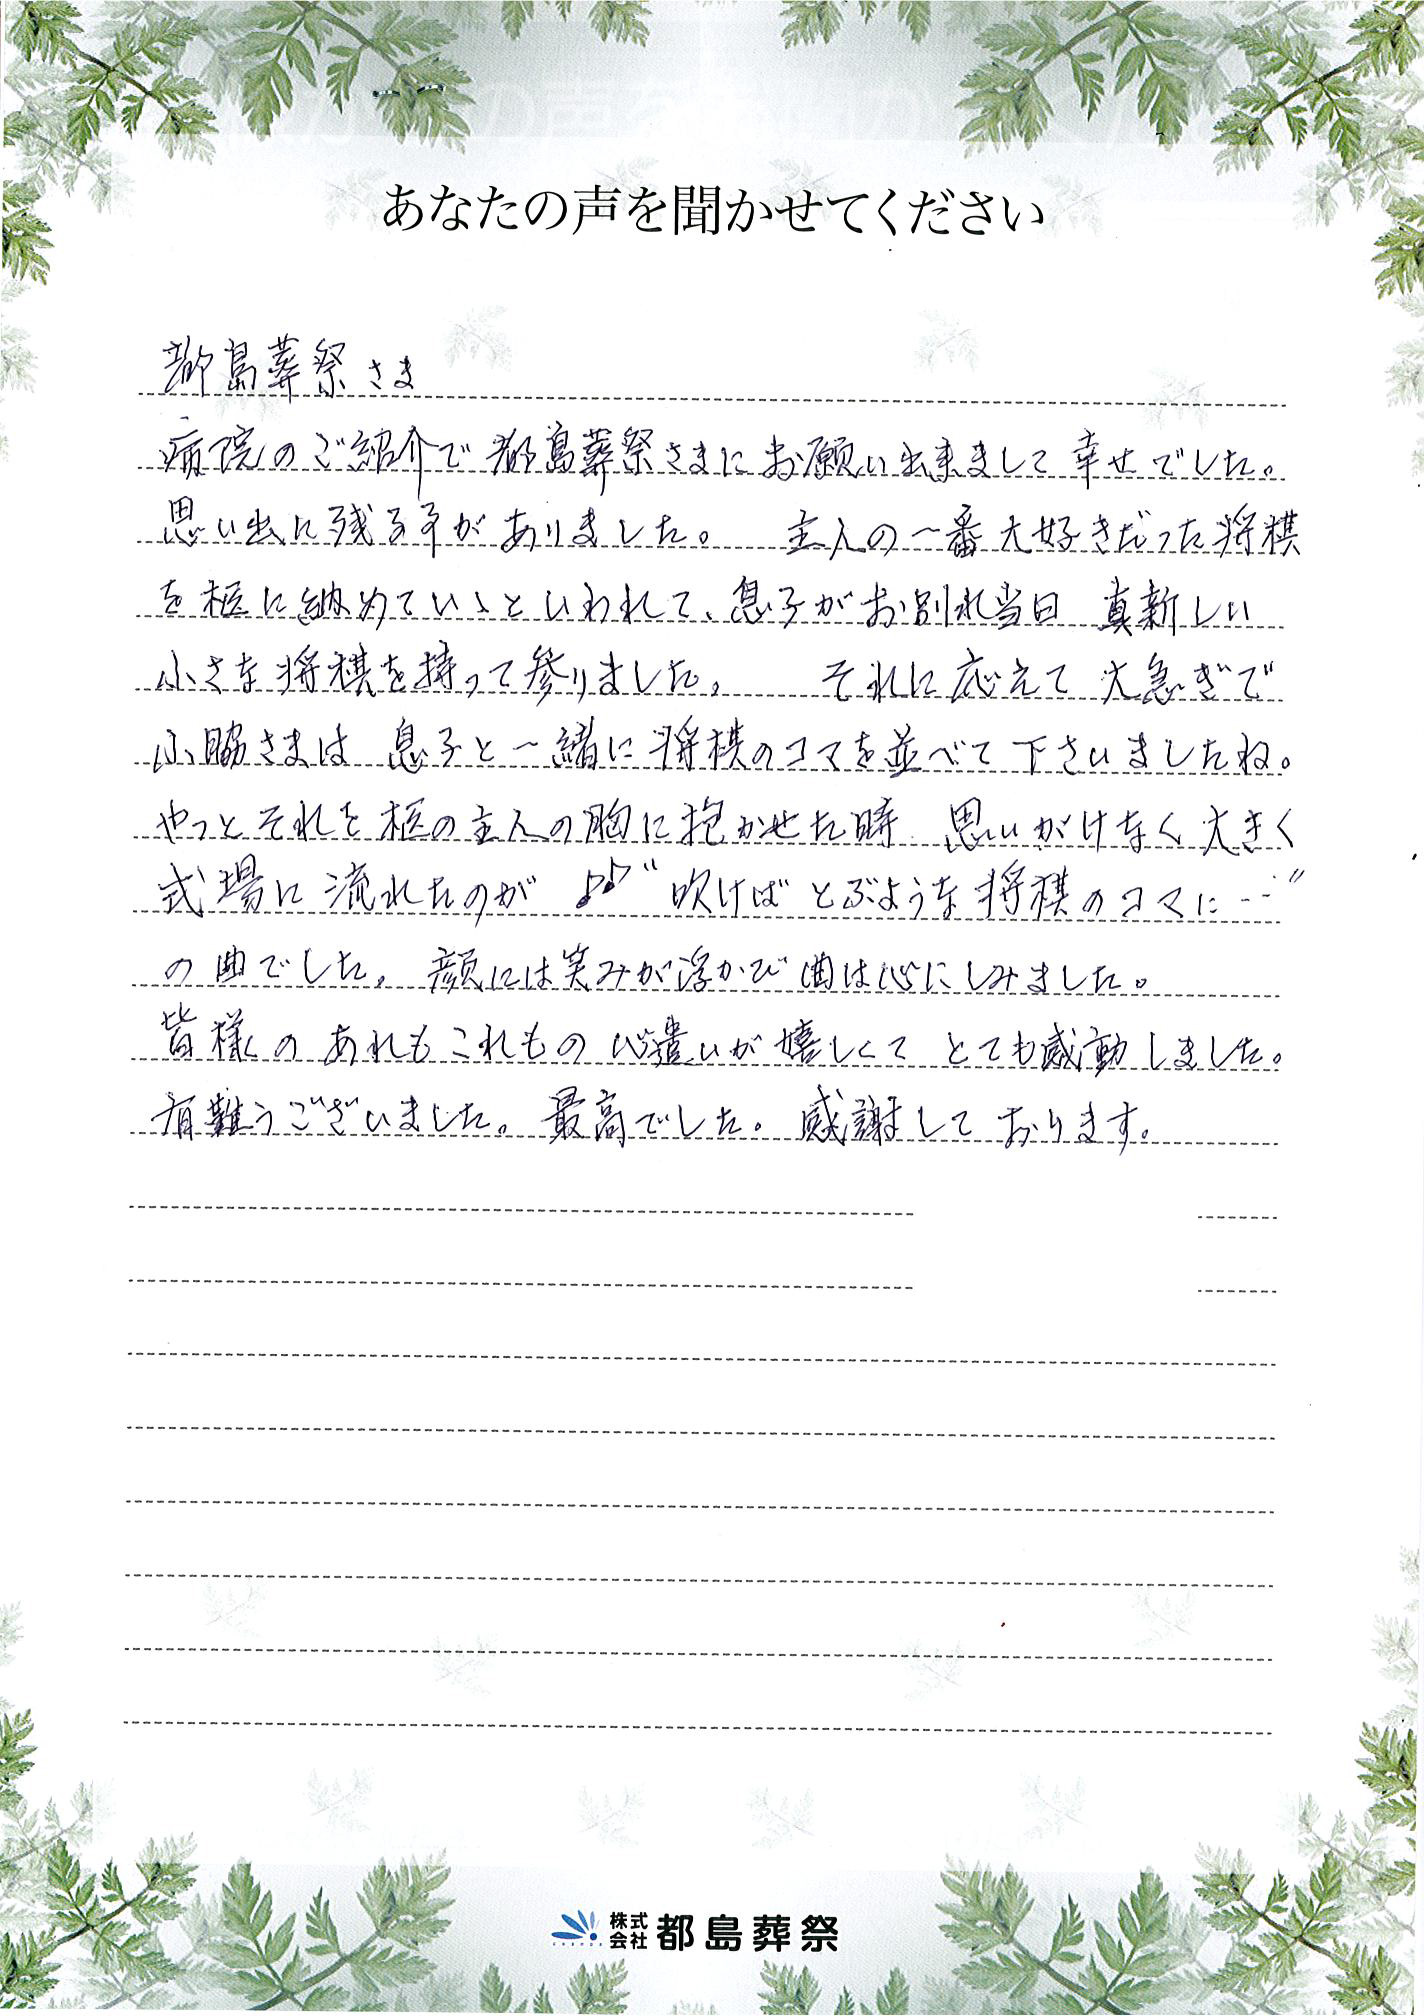 あなたの声を聞かせてください
都島葬祭さま
病院のご紹介で都島葬祭さまにお願い出来まして幸せでした。
思い出に残る事がありました。 主人の一番大好きだった将棋
を柩に納めていゝといわれて、息子がお別れ当日 真新しい
小さな将棋を持って参りました。 それに応えて大急ぎで
小脇さまは 息子と一緒に将棋のコマを並べて下さいましたね。
やっとそれを柩の主人の胸に抱かせた時 思いがけなく大きく
式場に流れたのが ♪♪"吹けばとぶような将棋のコマに…"
の曲でした。顔には笑みが浮かび曲は心にしみました。
皆様のあれもこれもの心遣いが嬉しくてとても感動しました。
有難うございました。最高でした。感謝しております。
株式会社 都島葬祭